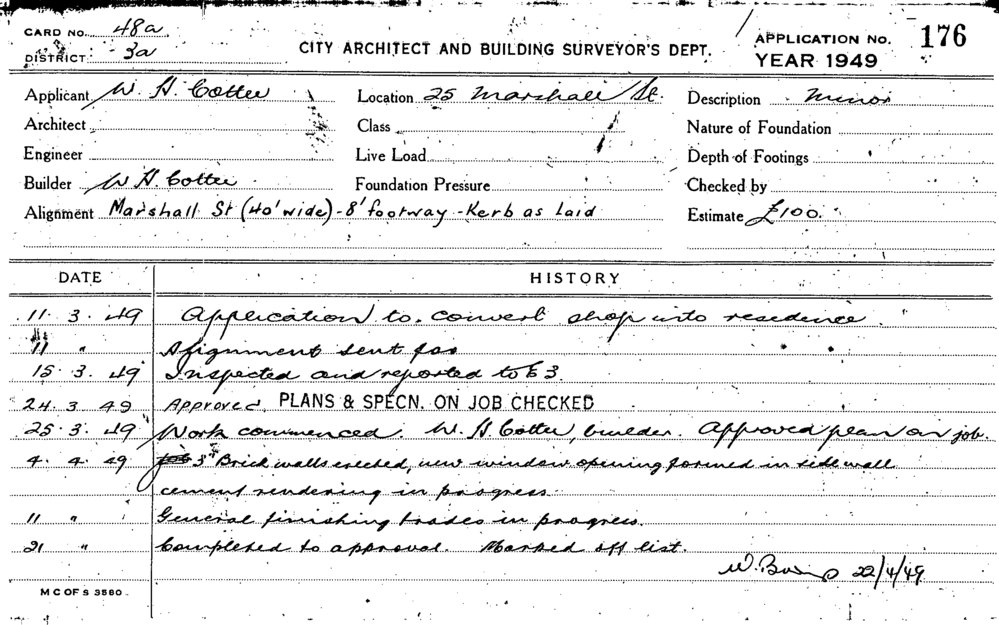 CARD NO. 48a
DISTRICT 3a
CITY ARCHITECT AND BUILDING SURVEYOR'S DEPT.
APPLICATION NO. 176
YEAR 1949
Applicant W. H. Cotter Location 25 Marshall St. Description Minor
Architect Class Nature of Foundation
Engineer Live Load Depth of Footings
Builder W H. Cotter Foundation Pressure Checked by
Alignment Marshall St (40' wide) - 8' footway - Kerb as laid Estimate £100.
DATE HISTORY
11. 3. 49 Application to convert shop into residence.
11 " Alignment sent for
15. 3. 49 Inspected and reported to 3.
24. 3 49 Approved. PLANS & SPECN. ON JOB CHECKED
25. 3. 49 Work commenced. W. H. Cotter, builder. Approved plan on job.
4. 4. 49 3" Brick walls erected, new window opening formed in side wall
cement rendering in progress.
11 " General finishing trades in progress.
21 " Completed to approval. Marked off list.
W. 22/4/49
M C OF S 3580